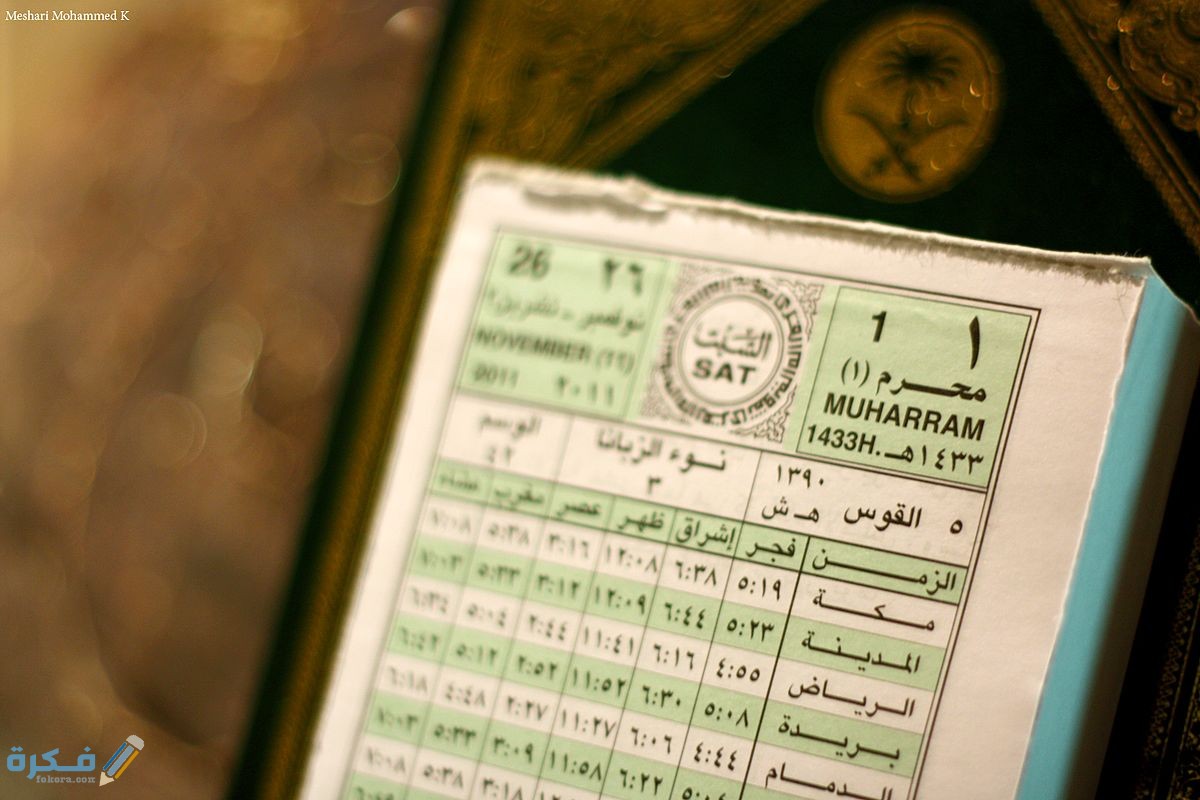 Meshari Mohammed K
26 ٢٦
نوفمبر ـ تشرين٢
NOVEMBER (11)
2011 ٢٠١١
السَّبْت
SAT
1 ١
محـــرم (١)
MUHARRAM
1433H. ١٤٣٣هـ
الوسم
٤٢
نـــوء الزبانا
٣
١٣٩٠
هـ ش
القوس ٥
الزمـــــن فجـر إشراق ظهـر عصـر مغرب عشاء
مـــكـــة ٥:١٩ ٦:٣٨ ١٢:٠٨ ٣:١٦ ٥:٣٨ ٧:٠٨
المـديـنــة ٥:٢٣ ٦:٤٤ ١٢:٠٩ ٣:١٢ ٥:٣٣ ٧:٠٣
الرياض ٤:٥٥ ٦:١٦ ١١:٤١ ٢:٤٤ ٥:٠٤ ٦:٣٤
بـــريـدة ٥:٠٨ ٦:٣٠ ١١:٥٢ ٢:٥٢ ٥:١٢ ٦:٤٢
الدمــام ٤:٤٤ ٦:٠٦ ١١:٢٧ ٢:٢٧ ٤:٤٨ ٦:١٨
٦:٢٢ ١١:٥٨ ٣:٠٩ ٥:٣٣ ٧:٠٣
٣:١٨ ٥:٣٨ ٧:٠٨
فكرة
fekera.com